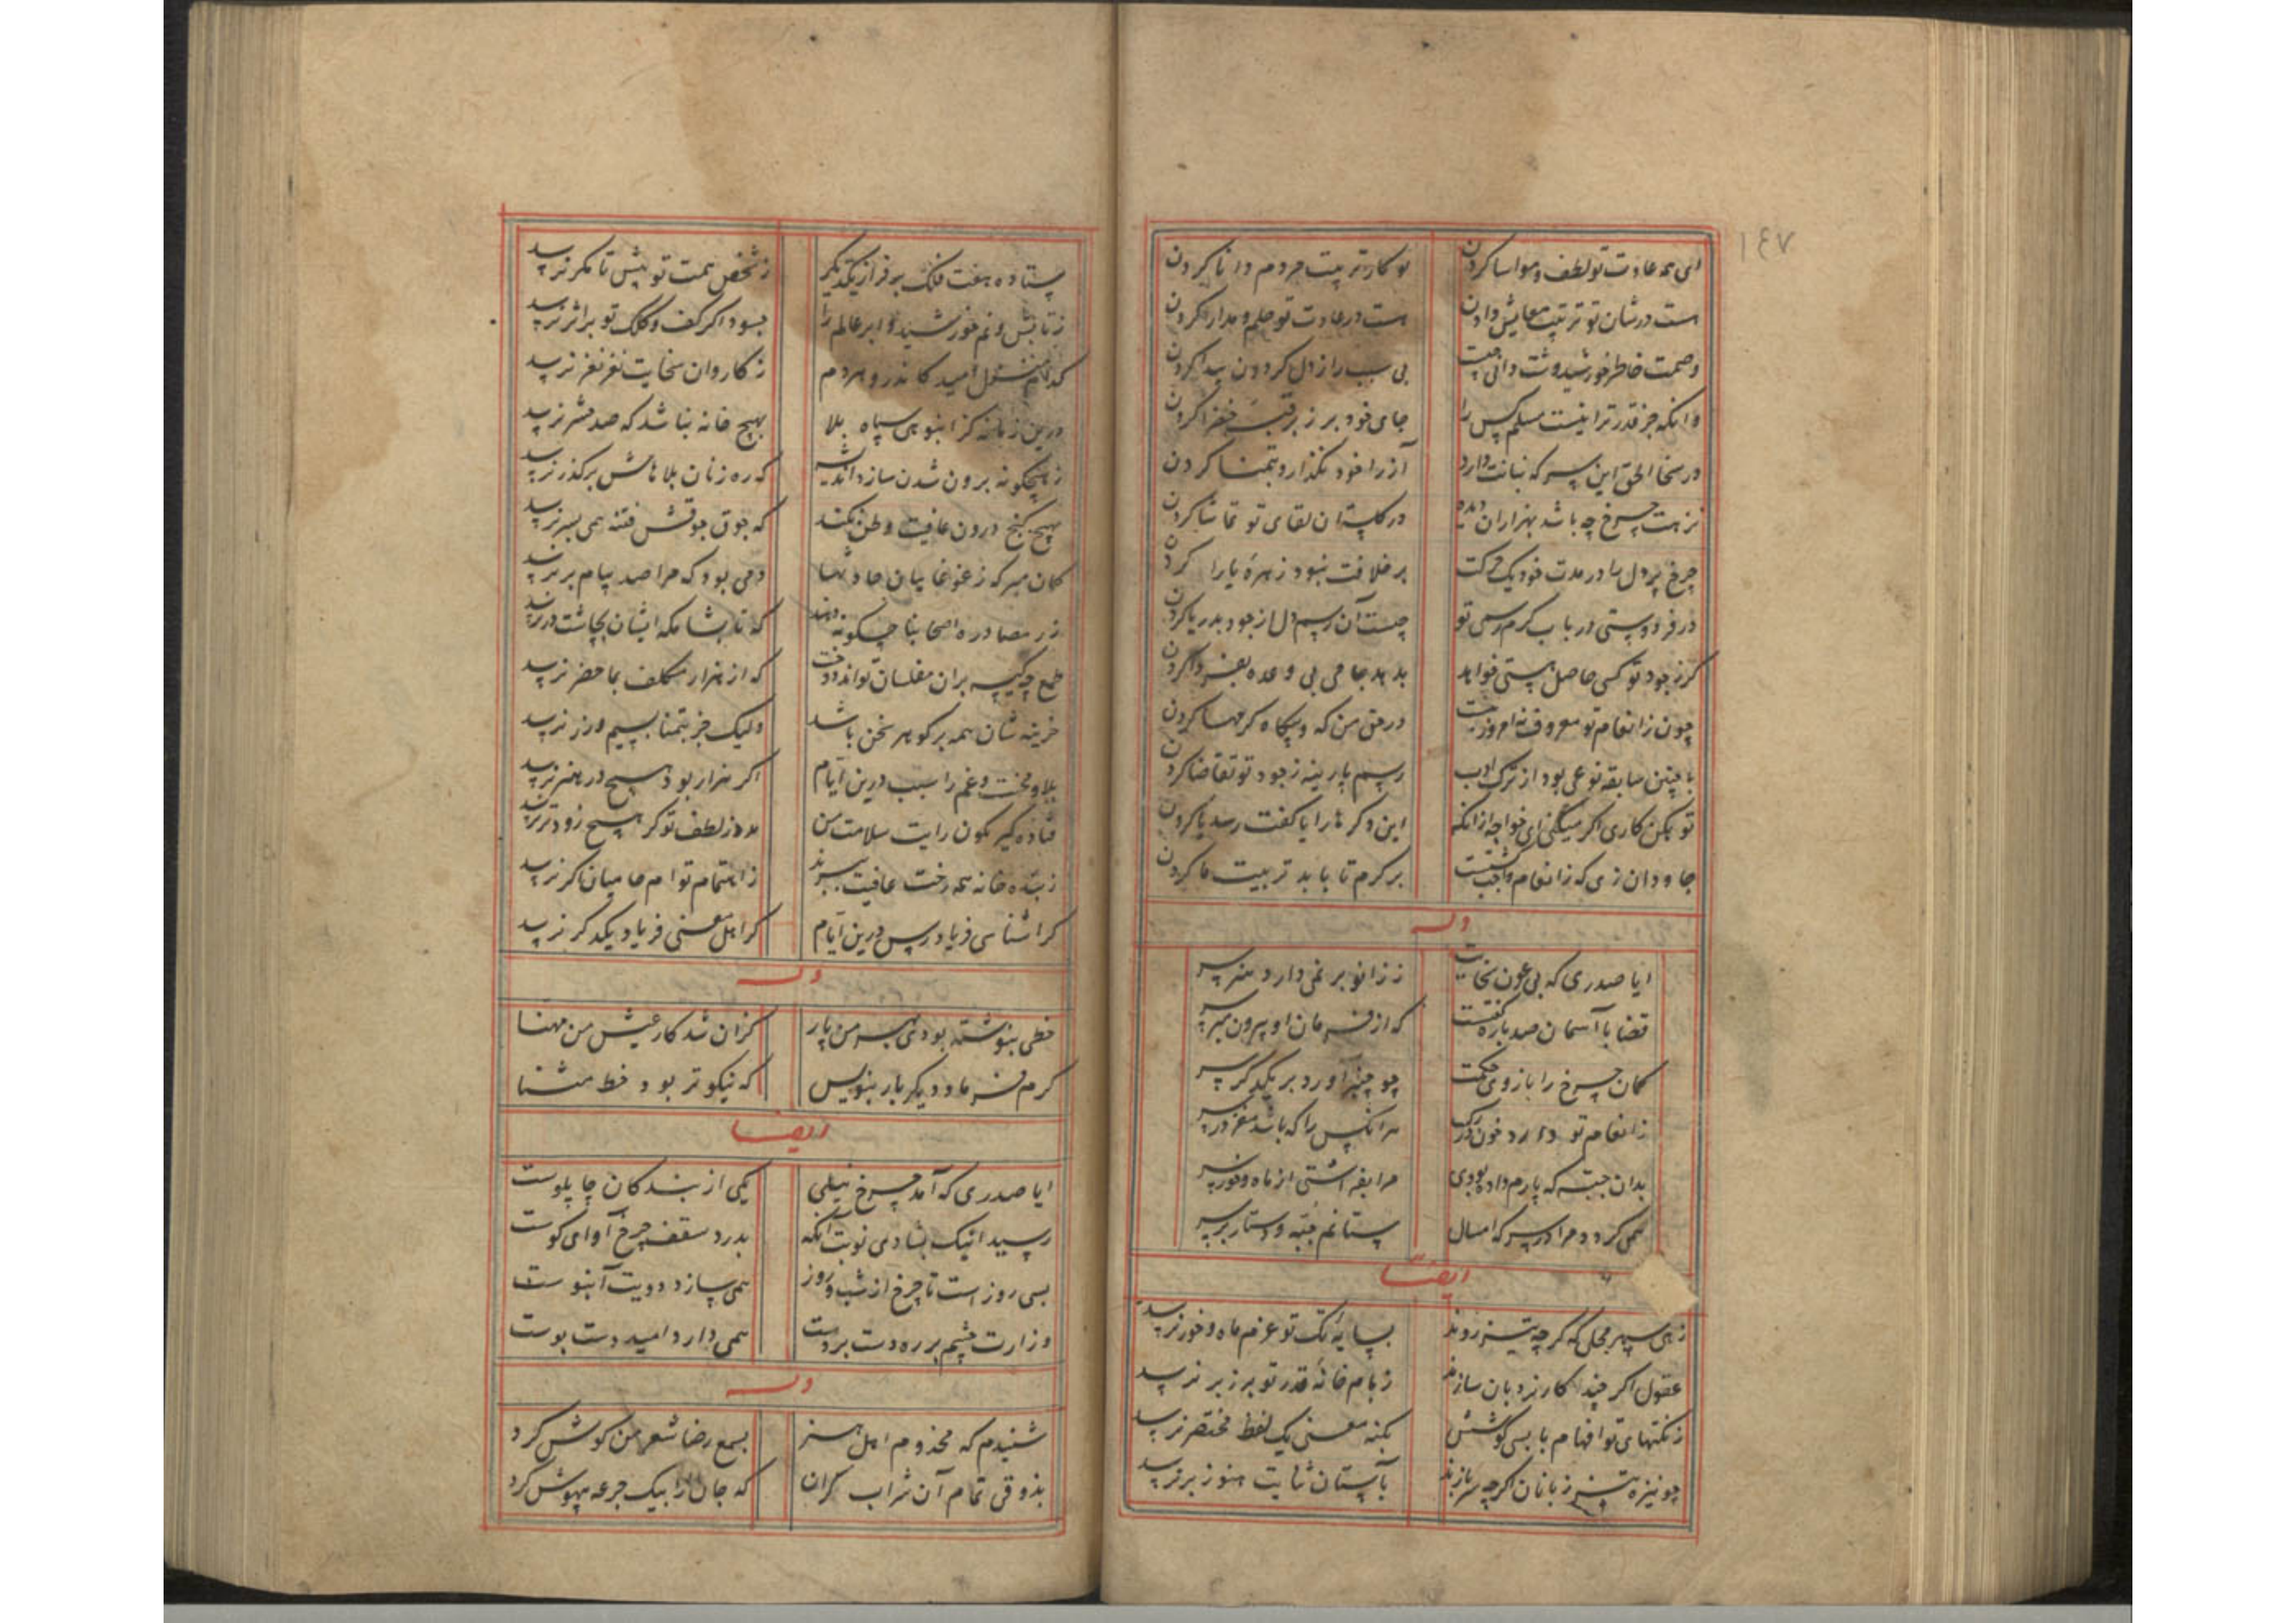 ۱۴۷
ای همه عادت تو لطف و مواسا کردن
تو کار تربیت مردم دانا کردن
است در شان تو ترتیب معایش دادن
هست در عادت تو حلم و مدارا کردن
خاطر خورشید وشت دانی چیست
بی سبب راز دل کردون پیدا کردن
وانکه جز قدر ترا نیست مسلم کس را
جای خود بر زبر قبه خضرا کردن
در سخا الحق این سر که بنانت دارد
آز را خود نگذارد بتمنا کردن
نزهت چرخ چه باشد بهزاران دیده
در کلستان لقای تو تماشا کردن
چرخ پر دل را در مدت خود یک حرکت
بر خلافت نبود زهره یارا کردن
در فرودستی در باب کرم رسمی تو
چیست آن رسم دل از جود بدریا کردن
کرز جود تو کسی حاصل هستی خواهد
بدهد جامی بی وعده بفردا کردن
چون ز انعام تو معروف نه امروز
در حق من که و بیکاه کرمها کردن
با چنین سابقه نوعی بود از ترک ادب
رسم پارینه ز جود تو تقاضا کردن
تو بکن کاری اکر میکنی ای خواجه از آنکه
این دکرها را یا کفت رسد یا کردن
جاودان زی که ز انعام واجب کشتست
بر کرم تا بابد تربیت ما کردن
وله
ایا صدری که بی عون سخایت
ز زانو بر نمی دارد هنر سر
قضا با آسمان صد باره گفتست
که از فرمان او بیرون مبر سر
کمان چرخ را بازوی حکمت
چو چنبر آورد بر یکدکر سر
ز انعام تو دارد خون در رک
هر انکس را که باشد مغز در سر
بدان جبه که پارم داده بودی
مرا بفراشتی از ماه و خور سر
همی کردد مرا در سر که امسال
ستانم جبه و دستار بر سر
ایضا
زهی سپهر محلی که کرچه تیز روند
بسایه تک تو عزم ماه و خور نرسد
عقول اکر چند کار نردبان سازند
ز بام خانه قدر تو بر زبر نرسد
ز نکتهای تو افهام با بسی کوشش
بکنه معنی یک لفظ مختصر نرسد
چو نیزه تیز زبانان اکر چه سر یازند
بآستان ثنایت هنوز بر نرسد
ستاده هفت فلک بر فراز یکدیگر
ز شخص همت تو بیش تا کمر نرسد
ز تابش و نم خورشید و ابر عالم را
چه سود اکر کف و کلک تو بر اثر نرسد
کدام منزل امید کاندرو مردم
ز کاروان سخایت نفر نفر نرسد
درین زمانه کز انبوهی سپاه بلا
بهیچ خانه نباشد که صد حشر نرسد
ز هیچکونه برون شدن سازد اندیشه
که ره زنان بلاهاش برکذر نرسد
بهیچ کنج درون عافیت وطن نکند
که جوق جوقش فتنه همی بسر نرسد
کمان مبر که ز غوغاییان حادثها
دمی بود که مرا صد پیام بر نرسد
زر مصادره اصحابنا چکونه دهند
که تا بشامکه ایشان بچاشت در نرسد
طمع چه کیسه بران مفلسان تواند دوخت
که از هزار مکلف بما حضر نرسد
خزینه شان همه پر کوهر سخن باشد
ولیک جز بتمنا بسیم و زر نرسد
بلا و محنت و غم را سبب درین ایام
اکر هزار بود هیچ در هنر نرسد
فتاده کیر نکون رایت سلامت من
مدد ز لطف تو کر هیچ زودتر نرسد
ز بنده خانه همه رخت عافیت ببرند
ز اهتمام توام حامیان اکر نرسد
کراشناسی فریادرس درین ایام
کر اهل معنی فریاد یکدکر نرسد
وله
خطی بنوشته بودی بهر من پار
کزان شد کار عیش من مهنا
کرم فرما و دیکر بار بنویس
که نیکوتر بود خط مثنا
ایضا
ایا صدری که آمد چرخ نیلی
یکی از بندکان چاپلوست
رسید اینک بشادی نوبت آنکه
بدرد سقف چرخ آوای کوست
بسی روز است تا چرخ از شب و روز
همی سازد دویت آبنوست
وزارت چشم بر ره دست بر دست
همی دارد امید دست بوست
وله
شنیدم که مخدوم اهل هنر
بسمع رضا شعر من کوش کرد
بذوقی تمام آن شراب کران
که جان را بیک جرعه بیهوش کرد